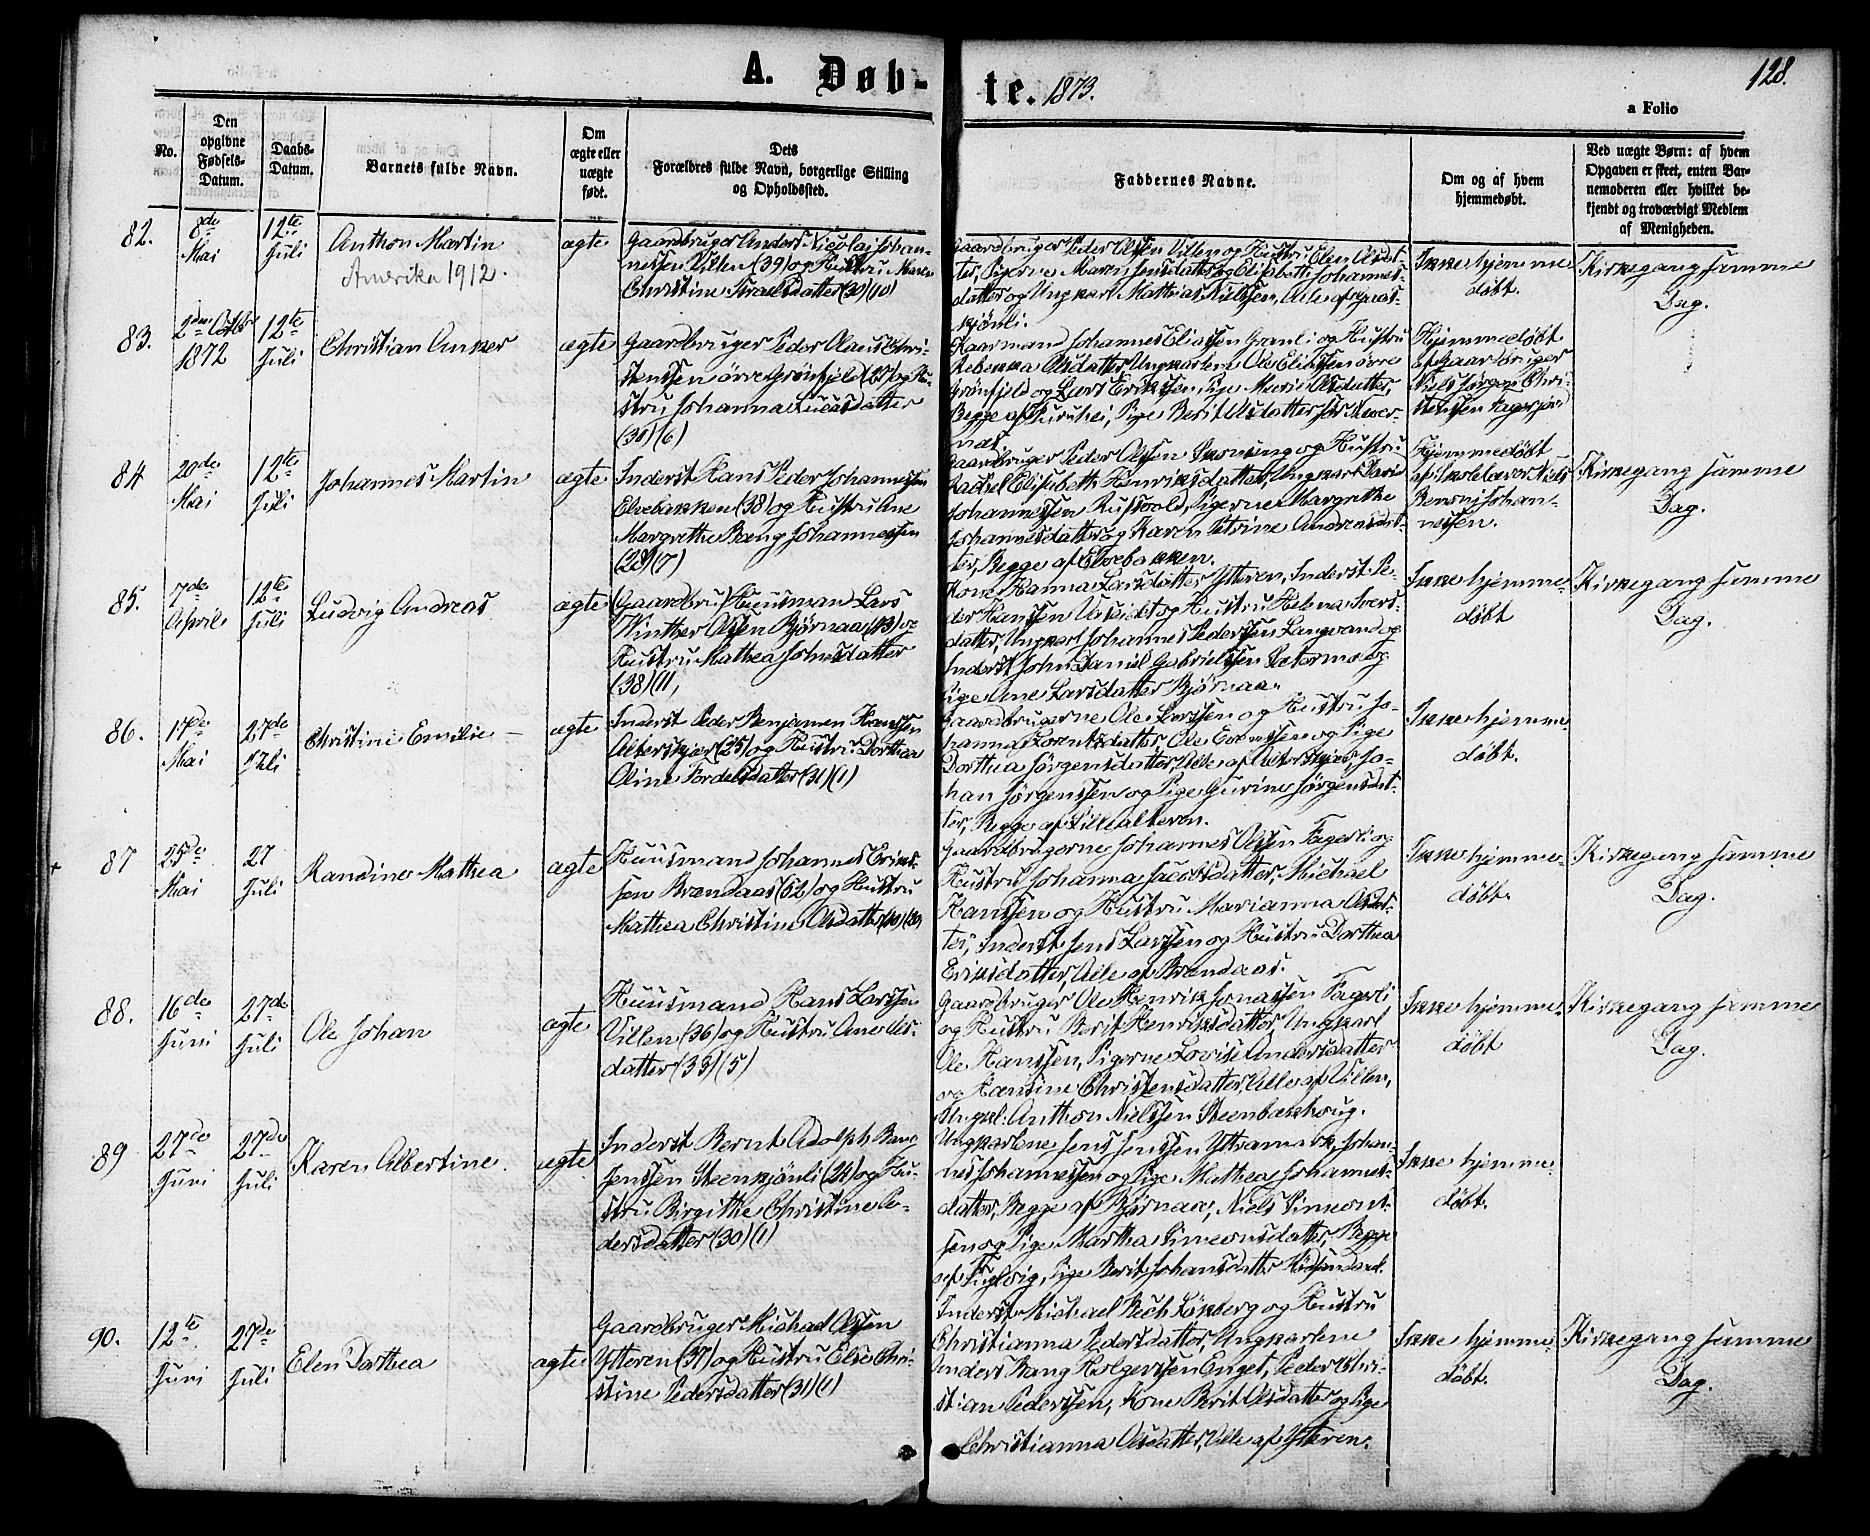 A. Døb-
te. 1873.
128.
a Folio
No.
Den
opgivne
Fødsels-
Datum.
Daabs-
Datum.
Barnets fulde Navn.
Om
ægte eller
uægte
født.
Dets
Forældres fulde Navn, borgerlige Stilling
og Opholdssted.
Faddernes Navne.
Om og af hvem
hjemmedøbt.
Ved uægte Børn: af hvem
Opgaven er skeet, enten Bar-
nemoderen eller hvilket be-
kjendt og troværdigt Medlem
af Menigheden.
82.
8de
Mai
12te
Juli
Anthon Martin
Amerika 1912.
ægte
Gaardbruger Anders Nicolai Johan-
nessen Villen (39) og Hustru Maren
Christine Israelsdatter (30) (10)
Gaardbruger Peder Olssen Villen og Hustru Elen Olsdat-
ter, Pigerne Maren Jensdatter og Elisabeth Johannes-
datter og Ungkarl Mathias Nielssen, Alle af
skjönli.
Ikke hjemme
døbt.
Kirkegang samme
Dag.
83.
2den Octbr
1872
12te
Juli
Christian Anker
ægte
Gaardbruger Peder Olaus Chri-
stenssen övre Grönfjeld (28) og Hu-
stru Johanna Lucasdatter
(30) (6)
Kaarmand Johannes Eliassen Granli og Hustru
Rebekka Olsdatter, Ungkarlene Ole Eliassen övre
Grönfjeld og Lars Erikssen, Pige Marie Olsdatter,
Begge af Furuhei, Pige Berit Olsdatter
nes.
Hjemmedøbt
af Gaardbruger
Niels Jörgen Chri-
stenssen
84
20de
Mai
12te
Juli
Johannes Martin
ægte
Inderst Hans Peder Johannessen
Elvebakken (38) og Hustru Ane
Margrethe Rang Johannessen
(28) (7)
Gaardbruger Peder Olssen og Hustru
Rachel Elisabeth Henriksdatter, Ungkarl
Johannessen Rufsvold, Pigerne Margrethe
Johannesdatter og Karen Petrine Andreasdat-
ter, Begge af Elvebakken.
Hjemmedøbt
af Skolelærer Niels
Benoni Johan-
nessen.
Kirkegang samme
Dag.
85.
7de
April
12te
Juli
Ludvig Andreas
ægte
Gaardbru/Huusmand Lars
Winther Olssen Björnaa (43) og
Hustru Mathea Johnsdatter
(38) (11,
Kone Hanna Larsdatter Ytteren, Inderst Pe-
der Hanssen og Hustru Helena Ivers-
datter, Ungkarl Johannes Pederssen Langvand og
Inderst John Daniel Gabrielssen og
Pige Ane Larsdatter Björnaa.
Ikke hjemme-
døbt
Kirkegang samme
Dag.
86.
17de
Mai
27de
Juli
Christine Emilie -
ægte
Inderst Peder Benjamin Hanssen
Alterskjær (25) og Hustru Dorthea
Oline Tordelsdatter (31) (1)
Gaardbrugerne Ole Larssen og Hustru Jo-
hanna Lorentsdatter, Ole Evenssen og Pige
Dorthea Jörgensdatter, Alle af Alterskjær, Jo-
han Jörgenssen og Pige Gurine Jörgensdat-
ter, Begge af Lillealteren.
Ikke hjemme-
døbt.
87
25de
Mai
27
Juli
Randine Mathea
ægte
Huusmand Johannes Eriks-
sen Brændaas (52) og Hustru
Mathea Christine Olsdatter (40) (10)
Gaardbrugerne Johannes Olssen Fagerli og
Hustru Johanna Jacobsdatter, Michael
Hanssen og Hustru Marianna Olsdat-
ter, Inderst Jens Larssen og Hustru Dorthea
Eriksdatter, Alle af Brændaas.
Ikke hjemme-
døbt.
Kirkegang samme
Dag.
88.
16de
Juni
27de
Juli
Ole Johan
ægte
Huusmand Hans Larssen
Villen (36) og Hustru Ane Ols-
datter (33) (5)
Gaardbruger Ole Henrik Jonassen Fagerli
og Hustru Berit Henriksdatter, Ungkarl
Ole Hanssen, Pigerne Lovise Andersdatter
og Hansine Christensdatter, Alle af Villen,
Ungk: Anthon Nielssen Steenbækhoug.
Ikke hjemme-
døbt
Kirkegang samme
Dag.
89
27de
Juni
27de
Juli
Karen Albertine.
ægte
Inderst Bernt Adolph Bene-
jenssen Steenskjönli (24) og Hu-
stru Birgithe Christine Pe-
dersdatter (30) (1)
Ungkarlene Jens Jenssen Yttramark, Johan-
nes Johannessen og Pige Mathea Johannes-
datter, Begge af Björnaa, Niels Simeons-
sen og Pige Martha Simeonsdatter, Begge
af Fuglvig, Pige Berit Johansdatter
Ikke hjemme-
døbt.
90.
12te
Juni
27de
Juli
Elen Dorthea
ægte
Gaardbruger Michael Olssen
Ytteren (37) og Hustru Else Chri-
stine Pedersdatter (31) (1)
Inderst Michael Bech Lönberg og Hustru
Christianna Pedersdatter, Ungkarlene
Anders Bang Holgerssen Enget, Peder Chri-
stian Pederssen, Kone Berit Olsdatter og Pige
Christianna Olsdatter, Alle af Ytteren.
Ikke hjemme-
døbt.
Kirkegang samme
Dag.